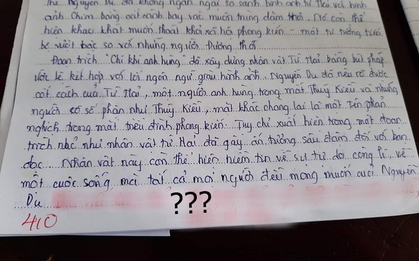 Nguyễn Du đã không ngần ngại so sánh hình ảnh Từ Hải với hình
ảnh Chim bằng cất cánh bay vạc muôn trùng dặm khơi. Nó còn thể
hiện khao khát muốn thoát khỏi xã hội phong kiến - một tư tưởng tiến
bộ vượt bậc so với những người đương thời
Đoạn trích "Chí khí anh hùng" đã xây dựng nhân vật Từ Hải bằng bút pháp
ước lệ kết hợp với lời ngôn ngữ giàu hình ảnh. Nguyễn Du đã nêu rõ được
cốt cách của Từ Hải, một người anh hùng trong mắt Thúy Kiều và những
người có số phận như Thúy Kiều, mặt khác chàng lại là một tên phản
nghịch trong mắt triều đình phong kiến. Tuy chỉ xuất hiện trong một đoạn
trích nhỏ như nhân vật Từ Hải đã gây ấn tượng sâu đậm đối với bạn
đọc. Nhân vật này còn thể hiện niềm tin về sự tự do công lí, về
một cuộc sống mà tất cả mọi người đều mong muốn của Nguyễn
Du.
4,0
???